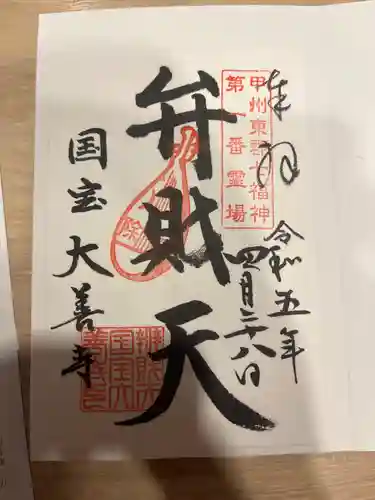 奉拝
甲州東郡七福神
第一番霊場
令和五年
四月二十八日
弁財天
除
国宝大善寺